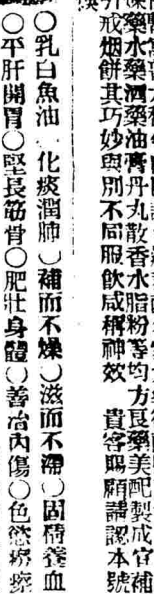 藥水藥酒藥油膏丹丸散香水脂粉等均方良藥美配製成官補
戒烟餅其巧妙與別不同服飲咸稱神效 貴客賜顧請認本號
〇乳白魚油 化痰潤肺〇補而不燥〇滋而不滯〇固精養血
〇平肝開胃〇堅長筋骨〇肥壯身體〇善治內傷〇色慾癆瘵